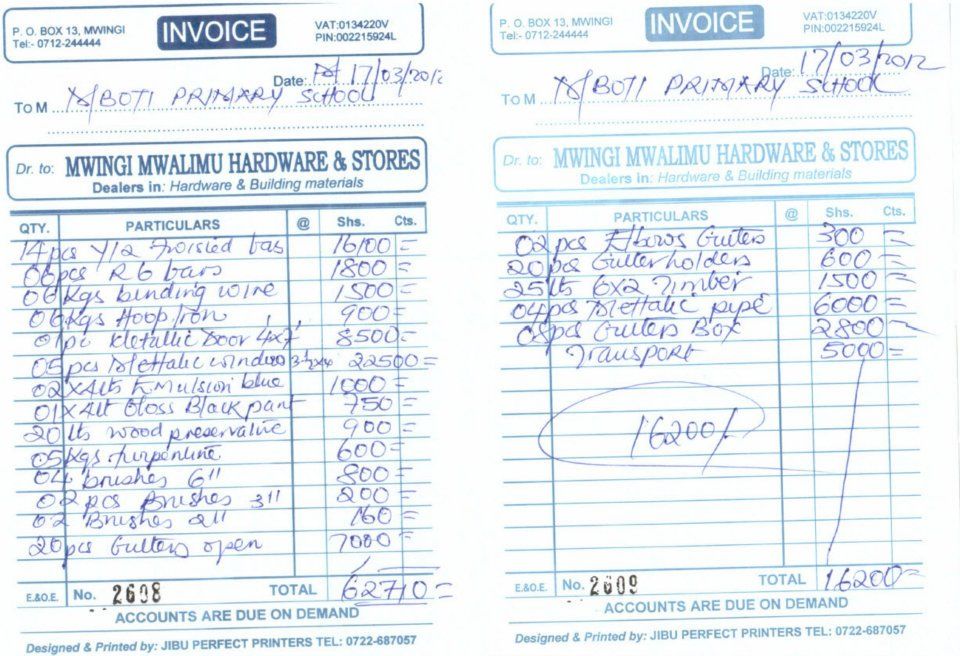 P. O. BOX 13, MWINGI
Tel:- 0712-244444
INVOICE
VAT:0134220V
PIN:002215924L
Date: 17/03/2012
To M BOTI PRIMARY SCHOOL
Dr. to: MWINGI MWALIMU HARDWARE & STORES
Dealers in: Hardware & Building materials
QTY. PARTICULARS @ Shs. Cts.
14 pcs Y12 Twisted bas 16100 =
06 pcs R6 bars 1800 =
06 kgs binding wire 1500 =
06 kgs Hoop Iron 900 =
01 pc Metallic Door 4x7 8500 =
05 pcs Metallic windows 22500 =
02 x 4lts Emulsion blue 1000 =
01 x 4lt Gloss Black paint 750 =
20 lts wood preservative 900 =
05 kgs turpentine 600 =
04 brushes 6" 800 =
02 pcs Brushes 3" 200 =
02 Brushes 2" 160 =
20 pcs Gutters open 7000 =
E.&O.E. No. 2608 TOTAL 62710 =
ACCOUNTS ARE DUE ON DEMAND
Designed & Printed by: JIBU PERFECT PRINTERS TEL: 0722-687057
P. O. BOX 13, MWINGI
Tel:- 0712-244444
INVOICE
VAT:0134220V
PIN:002215924L
Date: 17/03/2012
To M BOTI PRIMARY SCHOOL
Dr. to: MWINGI MWALIMU HARDWARE & STORES
Dealers in: Hardware & Building materials
QTY. PARTICULARS @ Shs. Cts.
02 pcs Elbows Gutters 300 =
20 pcs Gutter holders 600 =
25 lts 6x2 Timber 1500 =
04 pcs Mettalic pipe 6000 =
08 pcs Gutters Box 2800 =
Transport 5000 =
16200/-
E.&O.E. No. 2609 TOTAL 16200 =
ACCOUNTS ARE DUE ON DEMAND
Designed & Printed by: JIBU PERFECT PRINTERS TEL: 0722-687057